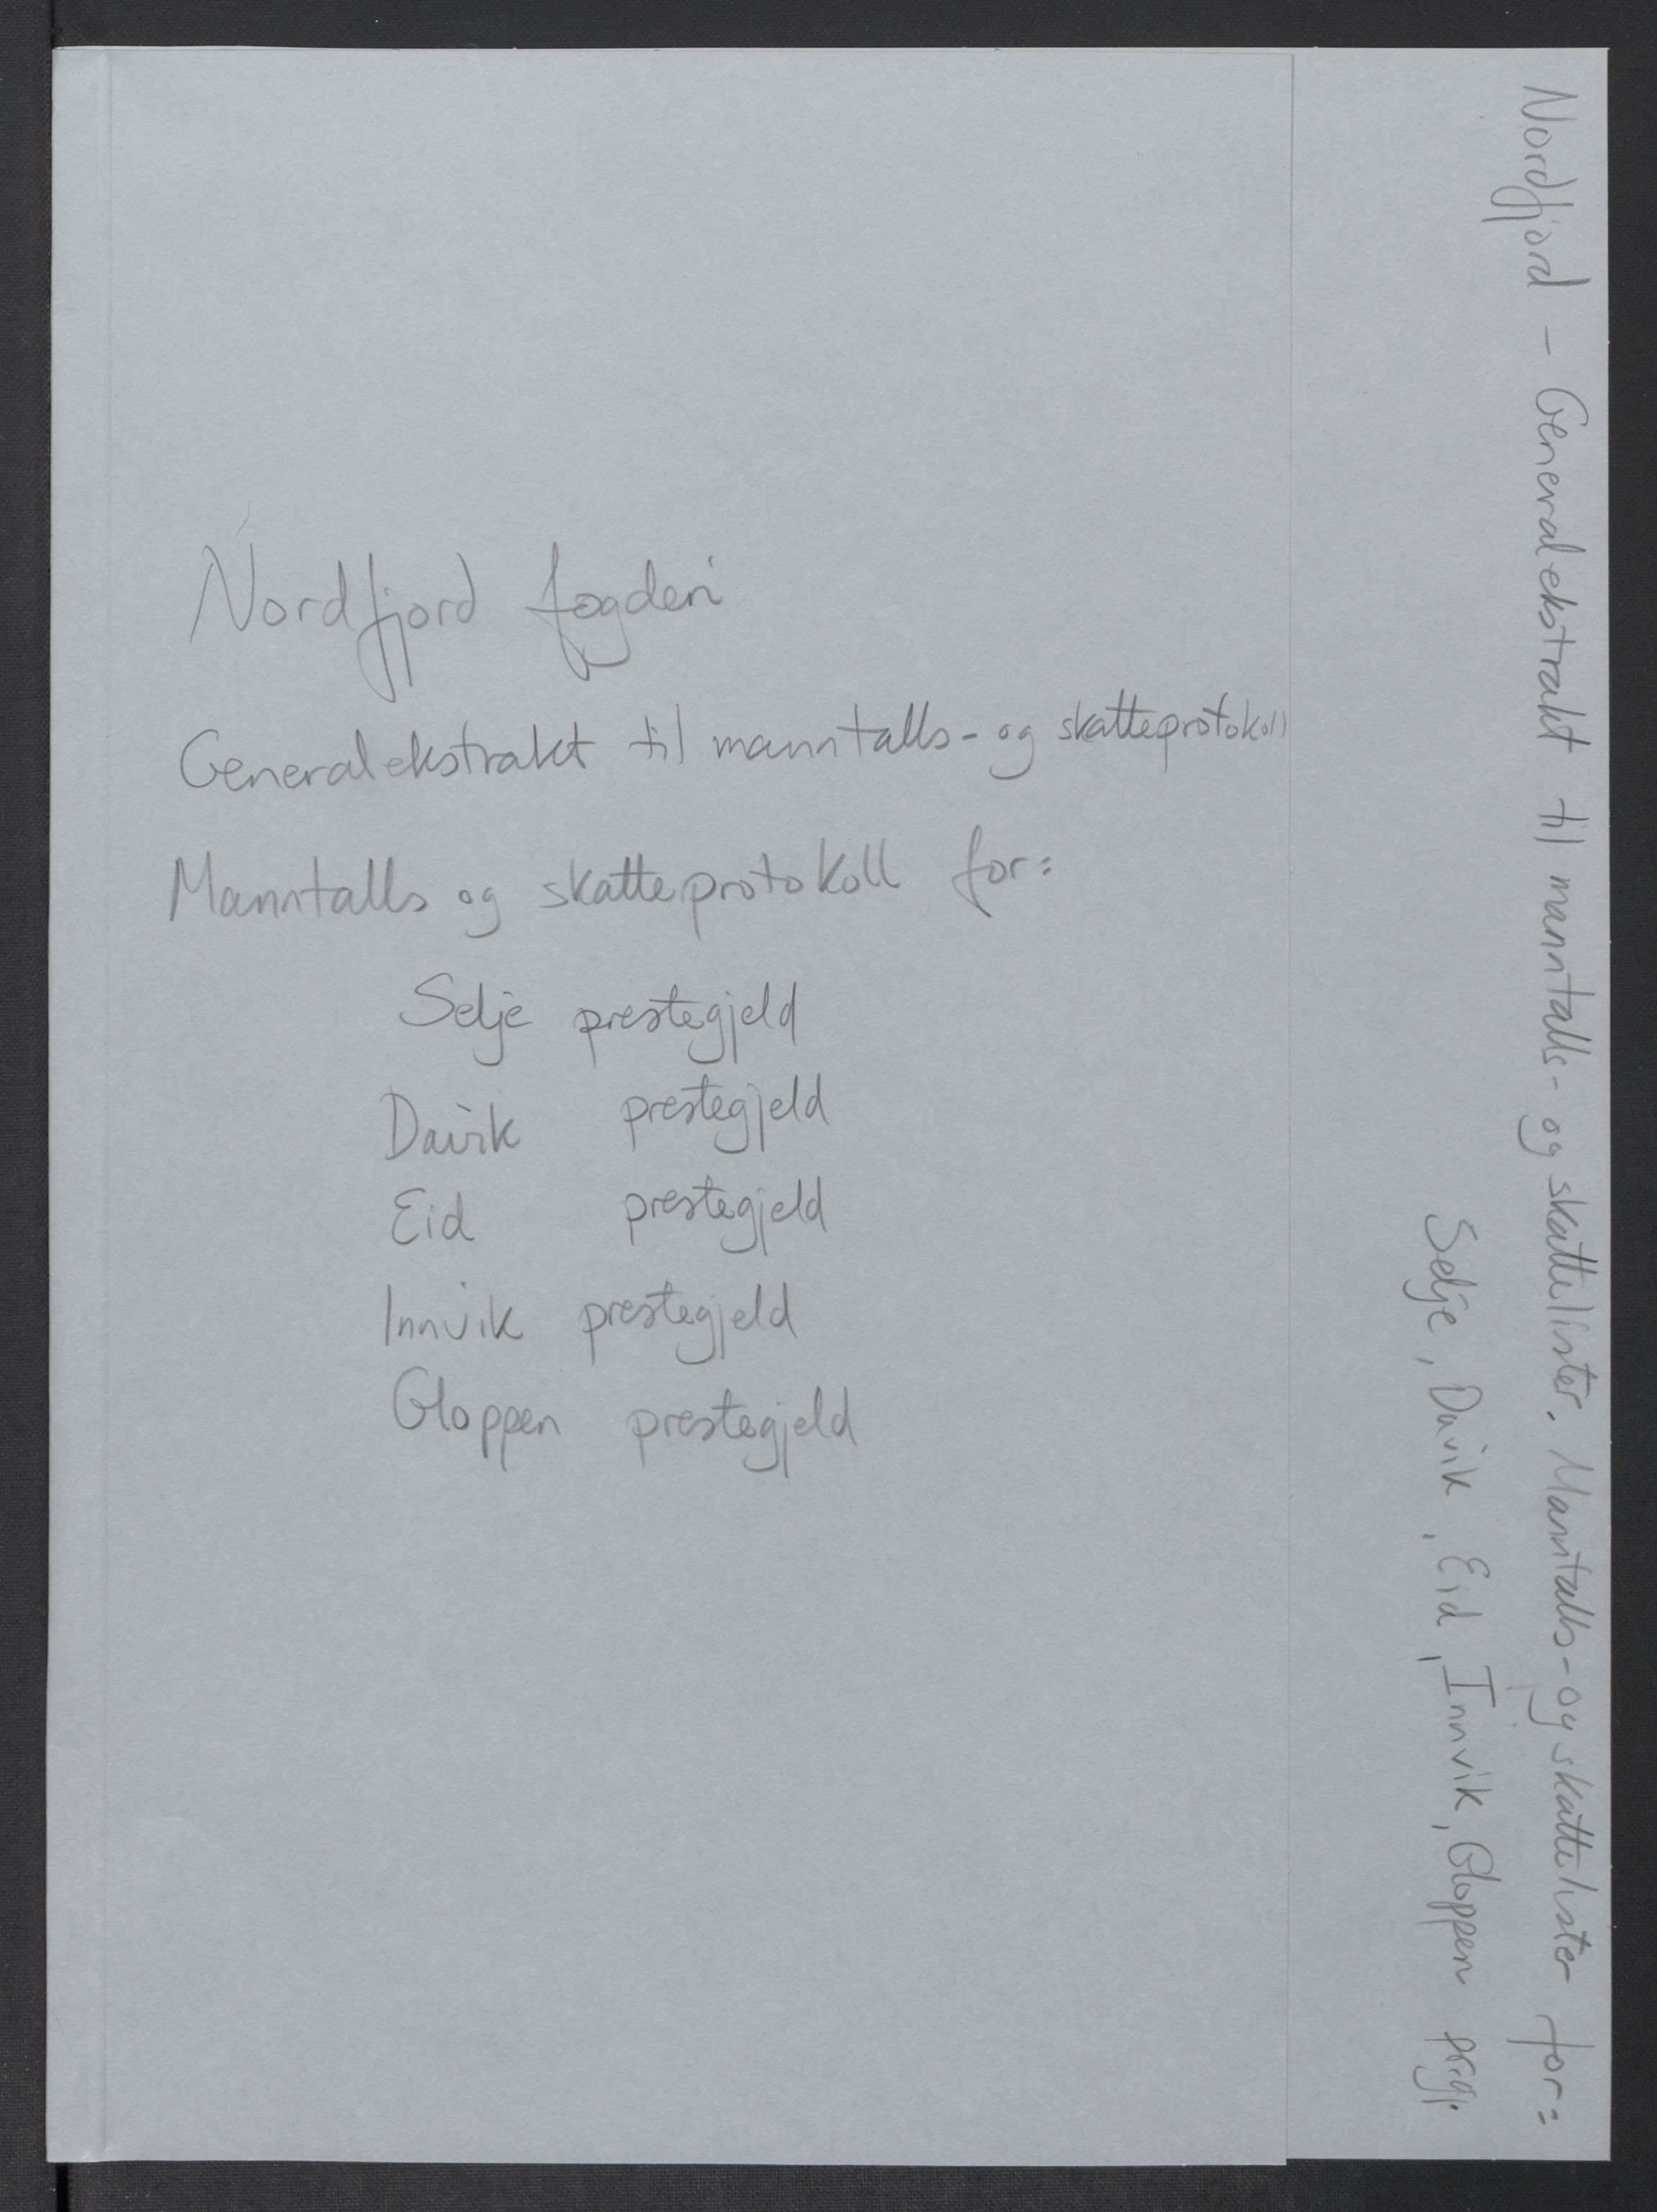 Nordfjord fogderi
Generalekstrakt til manntalls- og skatteprotokoll
Manntalls og skatteprotokoll for:
Selje prestegjeld
Davik prestegjeld
Eid prestegjeld
Innvik prestegjeld
Gloppen prestegjeld
Nordfjord - Generalekstrakt til manntalls- og skattelister. Manntalls- og skattelister for:
Selje, Davik, Eid, Innvik, Gloppen prgj.